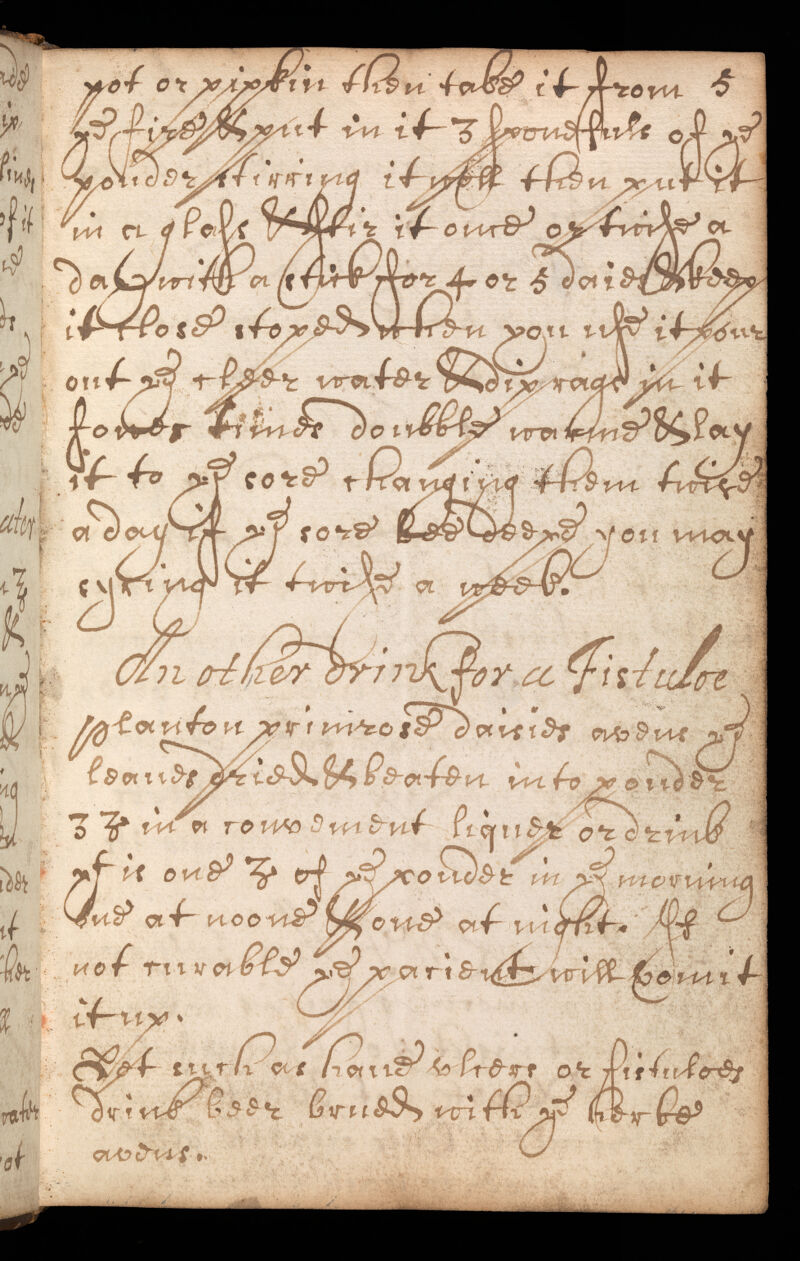 pot or pipkin then take it from 5
ye fire & put in it 3 sponefuls of ye
pouder stirring it well then put it
in a glass & stir it once or twise a
day with a stick for 4 or 5 daies & keep
it close stoped when you use it pour
out ye cleer water & dip rags in it
fower times doubble warme & lay
it to ye sore changing them twise
a day if ye sore bee deepe you may
syring it twise a week.
An other drink for a Fistuloe
planton primrose daisies avens ye
leaues dried & beaten into pouder
3 ʒ in a convenient liquer or drink
yt is one ʒ of ye pouder in ye morning
one at noone & one at night. If
not curable ye pacient will vomit
it up.
Let such as haue vlcers or fistuloes
drink beer brued with ye herbe
avens.